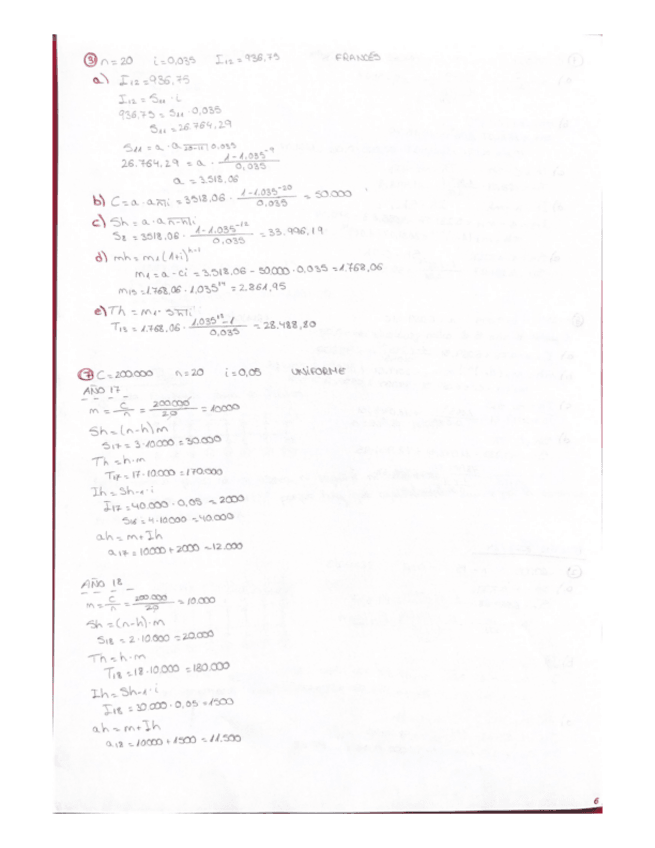 ③ n=20 i=0,035 I₁₂=936,75 FRANCÉS
a) I₁₂=936,75
I₁₂ = S₁₁ · i
936,75 = S₁₁ · 0,035
S₁₁ = 26.764,29
S₁₁ = a · a 20-11| 0,035
26.764,29 = a · (1-1,035⁻⁹)/0,035
a = 3.518,06
b) C = a · a n|i = 3518,06 · (1-1,035⁻²⁰)/0,035 = 50.000
c) Sh = a · a n-h|i
S₈ = 3518,06 · (1-1,035⁻¹²)/0,035 = 33.996,19
d) mh = m₁(1+i)ʰ⁻¹
m₁ = a - ci = 3.518,06 - 50.000 · 0,035 = 1.768,06
m₁₅ = 1.768,06 · 1,035¹⁴ = 2.861,95
e) Th = m₁ · S h|i
T₁₃ = 1.768,06 · (1,035¹³-1)/0,035 = 28.488,80
⑦ C=200.000 n=20 i=0,05 UNIFORME
AÑO 17
m = C/n = 200.000/20 = 10000
Sh = (n-h)m
S₁₇ = 3·10.000 = 30.000
Th = h·m
T₁₇ = 17·10.000 = 170.000
Ih = Sh-₁ · i
I₁₇ = 40.000 · 0,05 = 2000
S₁₆ = 4·10.000 = 40.000
ah = m + Ih
a₁₇ = 10.000 + 2000 = 12.000
AÑO 18
m = C/n = 200.000/20 = 10.000
Sh = (n-h)·m
S₁₈ = 2·10.000 = 20.000
Th = h·m
T₁₈ = 18·10.000 = 180.000
Ih = Sh-₁ · i
I₁₈ = 30.000 · 0,05 = 1500
ah = m + Ih
a₁₈ = 10000 + 1500 = 11.500
6